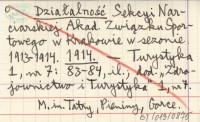 Działalność Sekcyi Nar-
ciarskiej Akad. Związku Spor-
towego w Krakowie w sezonie
1913-1914. 1914. Turystyka
1, nr 7: 83-84, il., dod. „Zdro-
jownictwo i Turystyka 1, nr 7.
M.in. Tatry, Pieniny, Gorce.